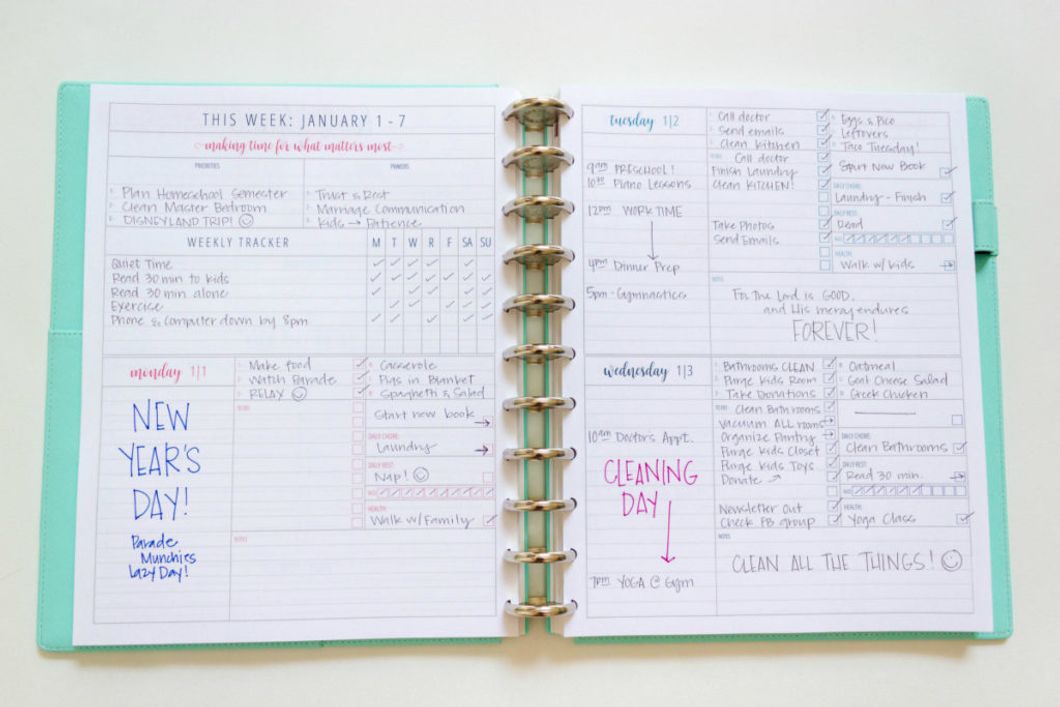 THIS WEEK: JANUARY 1 - 7
making time for what matters most
PRIORITIES
Plan Homeschool Semester
Clean Master Bathroom
DISNEYLAND TRIP! ☺
PRAYERS
Trust & Rest
Marriage Communication
Kids → Patience
WEEKLY TRACKER M T W R F SA SU
Quiet Time
Read 30 min to kids
Read 30 min alone
Exercise
Phone & Computer down by 8pm
monday 1|1
NEW
YEAR'S
DAY!
Parade
Munchies
Lazy Day!
Make food
Watch Parade
RELAX ☺
Casserole
Pigs in Blanket
Spaghetti & Salad
Start new book
DAILY CHORE:
Laundry
DAILY REST:
Nap! ☺
HEALTH:
Walk w/Family
NOTES
tuesday 1|2
9am PRESCHOOL!
10:30 Piano Lessons
12pm WORK TIME
4pm Dinner Prep
5pm - Gymnastics
Call doctor
Send emails
Clean Kitchen
Call doctor
Finish Laundry
Clean KITCHEN!
Take Photos
Send Emails
Eggs & Pico
Leftovers
Taco Tuesday!
Start New Book
DAILY CHORE:
Laundry - Finish
DAILY REST:
Read
HEALTH:
Walk w/ kids
NOTES
For the Lord is GOOD,
and His mercy endures
FOREVER!
wednesday 1|3
10am Doctors Appt.
CLEANING
DAY
7pm YOGA @ Gym
Bathrooms CLEAN
Purge Kids Room
Take Donations
Clean Bathrooms
Vacuum ALL rooms
Organize Pantry
Purge Kids Closet
Purge Kids Toys
Donate
Newsletter Out
Check FB group
Oatmeal
Goat Cheese Salad
Greek Chicken
DAILY CHORE:
Clean Bathrooms
DAILY REST:
Read 30 min.
HEALTH:
Yoga Class
NOTES
CLEAN ALL THE THINGS! ☺